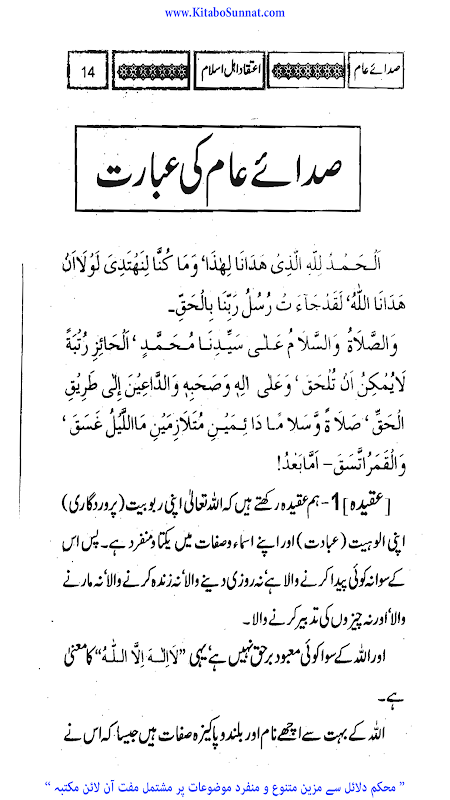 www.KitaboSunnat.com
صدائے عام اعتقاد اہل اسلام 14
صدائے عام کی عبارت
اَلْحَمْدُ لِلّٰهِ الَّذِیْ هَدَانَا لِهٰذَا ٬ وَمَا كُنَّا لِنَهْتَدِیَ لَوْلَا اَنْ
هَدَانَا اللّٰهُ ٬ لَقَدْ جَآءَتْ رُسُلُ رَبِّنَا بِالْحَقِّ۔
وَالصَّلَاةُ وَالسَّلَامُ عَلٰی سَیِّدِنَا مُحَمَّدٍ ٬ اَلْحَائِزِ رُتْبَةً
لَا یُمْكِنُ اَنْ تُلْحَقَ ٬ وَعَلٰی اٰلِهٖ وَصَحْبِهٖ وَالدَّاعِیْنَ اِلٰی طَرِیْقِ
الْحَقِّ ٬ صَلَاةً وَّسَلَامًا دَائِمَیْنِ مُتَلَازِمَیْنِ مَا اللَّیْلُ غَسَقَ ٬
وَالْقَمَرُ اتَّسَقَ – اَمَّا بَعْدُ!
[عقیدہ] 1- ہم عقیدہ رکھتے ہیں کہ اللہ تعالٰی اپنی ربوبیت (پروردگاری)
اپنی الوہیت (عبادت) اور اپنے اسماء وصفات میں یکتا و منفرد ہے۔ پس اس
کے سوا نہ کوئی پیدا کرنے والا ہے ٬ نہ روزی دینے والا ٬ نہ زندہ کرنے والا ٬ نہ مارنے
والا ٬ اور نہ چیزوں کی تدبیر کرنے والا۔
اور اللہ کے سوا کوئی معبود برحق نہیں ہے ٬ یہی ”لَا اِلٰـهَ اِلَّا اللّٰهُ“ کا معنیٰ
ہے۔
اللہ کے بہت سے اچھے نام اور بلند و پاکیزہ صفات ہیں جیسا کہ اس نے
” محکم دلائل سے مزین متنوع و منفرد موضوعات پر مشتمل مفت آن لائن مکتبہ “